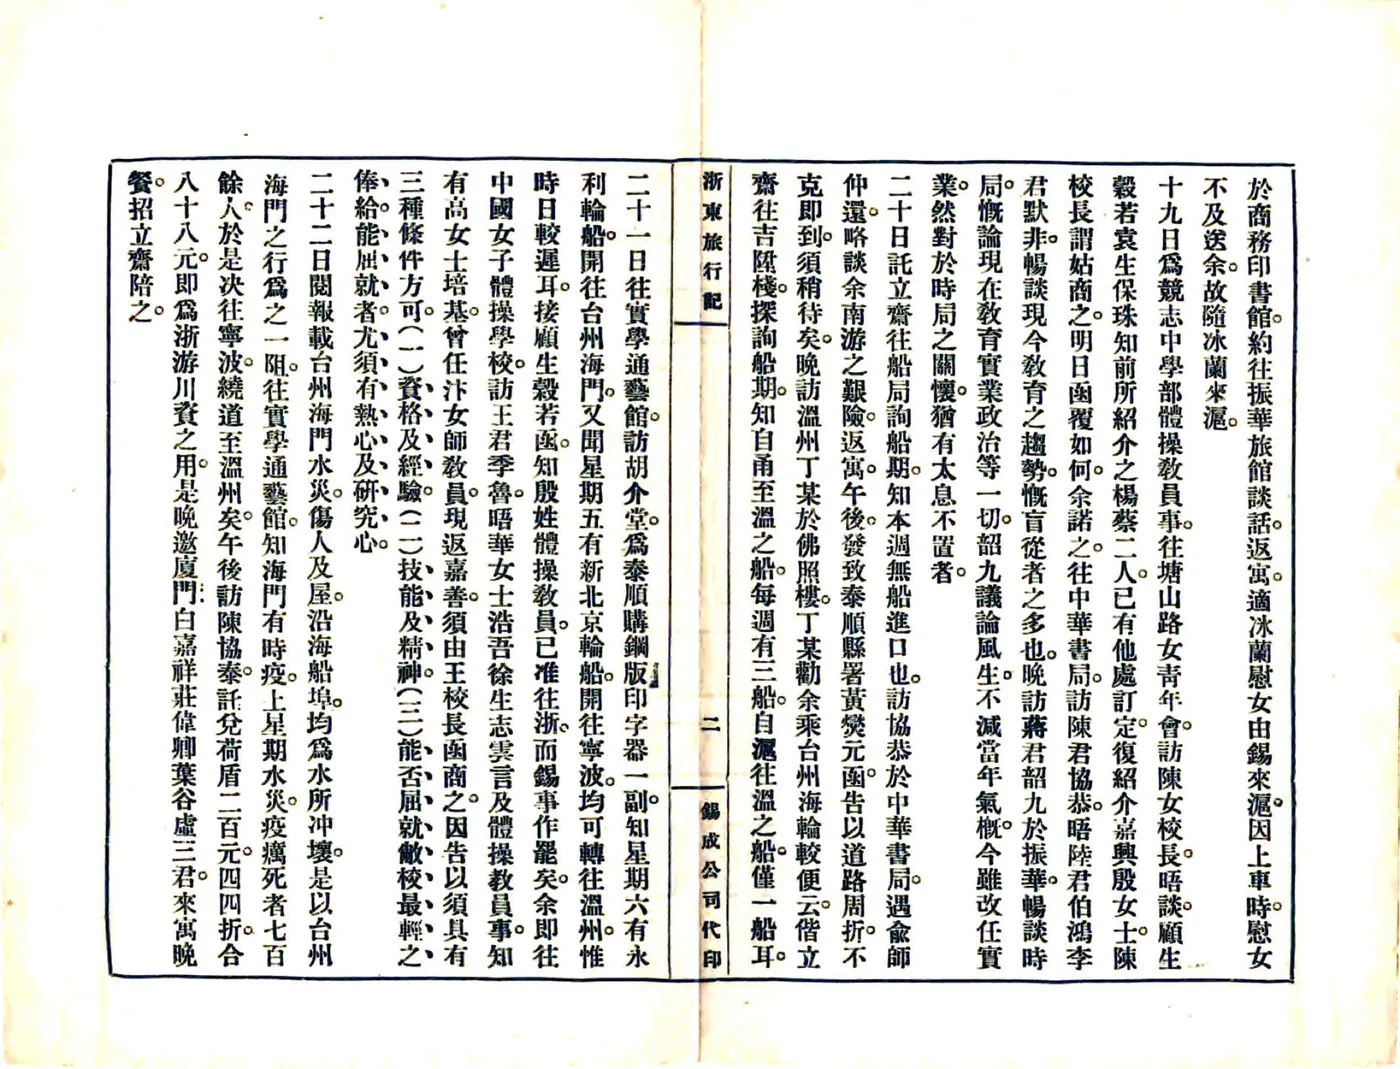 於商務印書館。約往振華旅館談話。返寓。適冰蘭慰女由錫來滬。因上車時。慰女
不及送余。故隨冰蘭來滬。
十九日爲競志中學部體操教員事。往塘山路女靑年會。訪陳女校長。晤談。顧生
穀若袁生保珠知前所紹介之楊蔡二人。已有他處訂定。復紹介嘉興殷女士。陳
校長謂姑商之。明日函覆如何。余諾之。往中華書局。訪陳君協恭。晤陸君伯鴻李
君默非。暢談現今教育之趨勢。慨盲從者之多也。晚訪蔣君韶九於振華。暢談時
局。慨論現在教育實業政治等一切。韶九議論風生。不減當年氣槪。今雖改任實
業。然對於時局之關懷。猶有太息不置者。
二十日託立齋往船局詢船期。知本週無船進口也。訪協恭於中華書局。遇俞師
仲還。略談余南游之艱險。返寓。午後。發致泰順縣署黃燮元函。告以道路周折。不
克即到。須稍待矣。晚訪溫州丁某於佛照樓。丁某勸余乘台州海輪較便云。偕立
齋往吉陞棧。探詢船期。知自甬至溫之船。每週有三船。自滬往溫之船。僅一船耳。
浙東旅行記
二
錫成公司代印
二十一日往實學通藝館。訪胡介堂。爲泰順購鋼版印字器一副。知星期六有永
利輪船。開往台州海門。又聞星期五有新北京輪船。開往寧波。均可轉往溫州。惟
時日較遲耳。接顧生穀若函。知殷姓體操教員。已准往浙。而錫事作罷矣。余即往
中國女子體操學校。訪王君季魯。晤華女士浩吾徐生志雲。言及體操教員事。知
有高女士培基。曾任汴女師教員。現返嘉善。須由王校長函商之。因告以須具有
三種條件方可。(一)資格及經驗。(二)技能及精神。(三)能否屈就敝校最輕之
俸給。能屈就者。尤須有熱心及研究心。
二十二日閱報載台州海門水災。傷人及屋。沿海船埠。均爲水所冲壞。是以台州
海門之行爲之一阻。往實學通藝館。知海門有時疫。上星期水災。疫癘死者七百
餘人。於是決往寧波。繞道至溫州矣。午後訪陳協泰。託兌荷盾二百元。四四折。合
八十八元。即爲浙游川資之用。是晚邀廈門白嘉祥莊偉卿葉谷虛三君。來寓晚
餐。招立齋陪之。